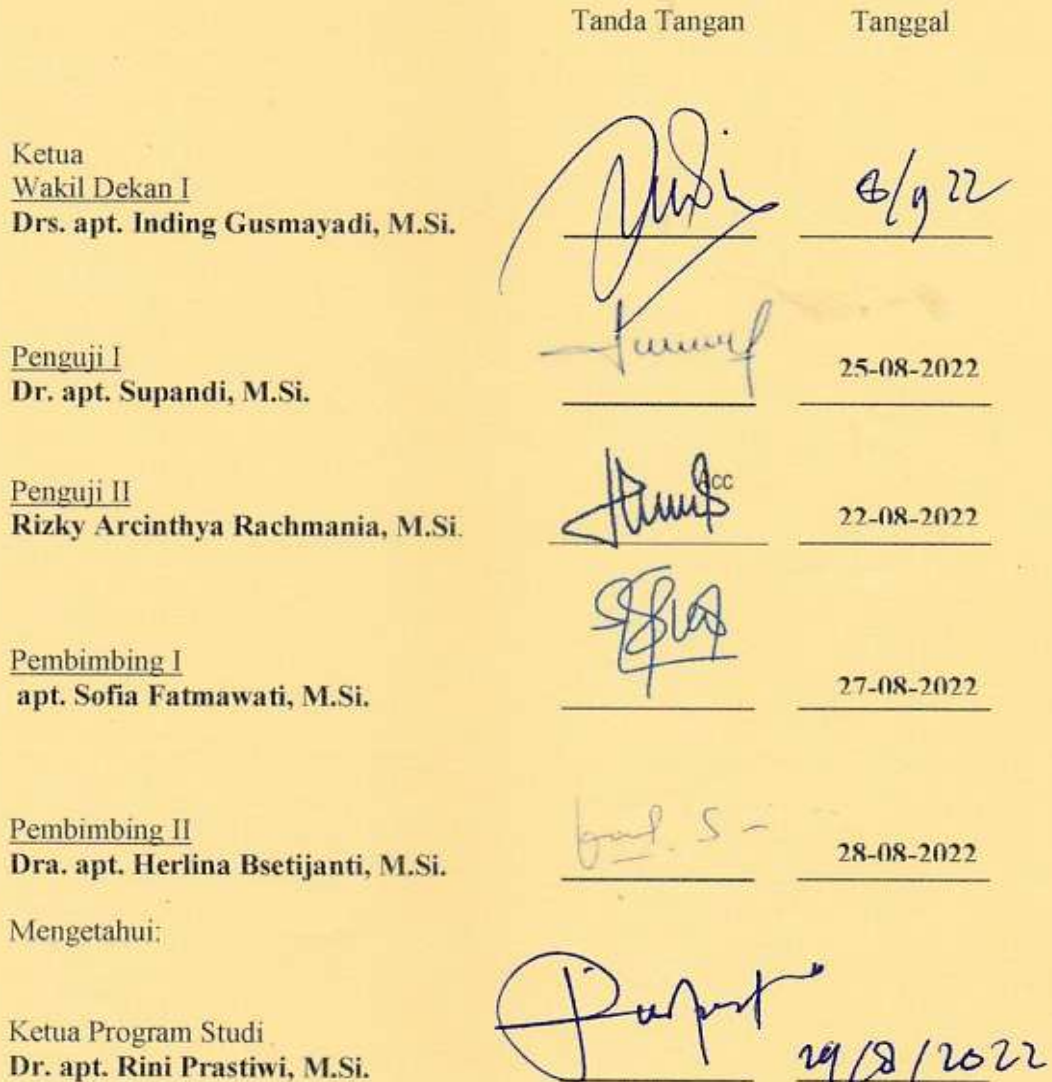 Tanda Tangan Tanggal
Ketua
Wakil Dekan I
Drs. apt. Inding Gusmayadi, M.Si. 8/9 22
Penguji I
Dr. apt. Supandi, M.Si. 25-08-2022
Acc
Penguji II
Rizky Arcinthya Rachmania, M.Si. 22-08-2022
Pembimbing I
apt. Sofia Fatmawati, M.Si. 27-08-2022
Pembimbing II
Dra. apt. Herlina Bsetijanti, M.Si. 28-08-2022
Mengetahui:
Ketua Program Studi
Dr. apt. Rini Prastiwi, M.Si. 29/8/2022